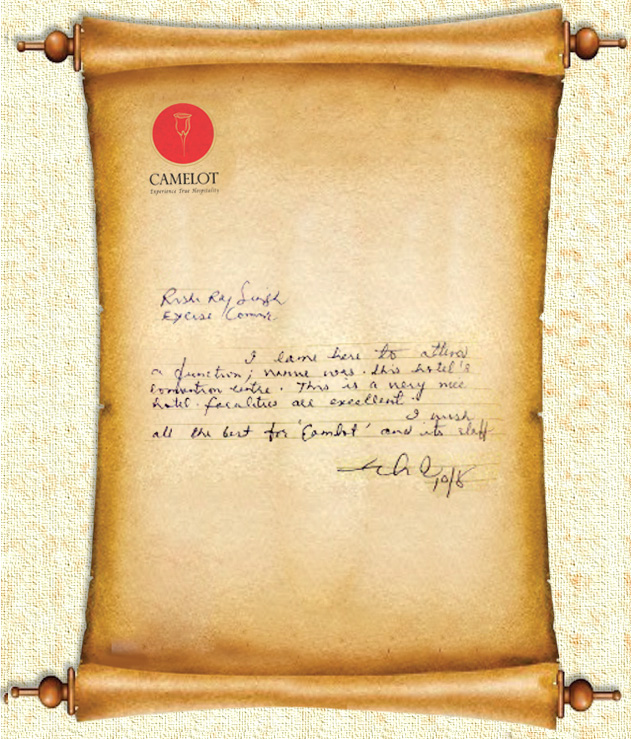 CAMELOT
Experience True Hospitality
Rishi Raj Singh
Excise Commr
I came here to attend
a function; venue was this hotel's
convention centre. This is a very nice
hotel. facalities are excellent.
I wish
all the best for 'Camlot' and its staff
10/8